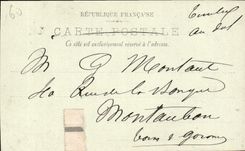 60
RÉPUBLIQUE FRANÇAISE
CARTE POSTALE
Ce côté est exclusivement réservé à l'adresse.
Timbre
au dos
M G Montaut
Rue de la Banque
Montauban
Tarn & Garonne